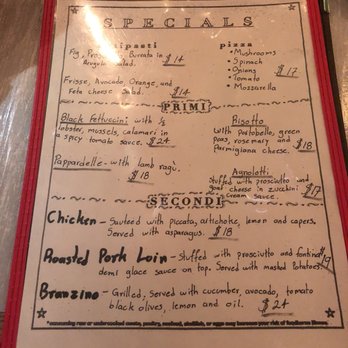 SPECIALS
Antipasti
Fig, Prosciutto, Burrata in
Arugula Salad. $14
Frisse, Avocado, Orange, and
Feta cheese Salad. $14
pizza
• Mushrooms
• Spinach
• Onions $17
• Tomato
• Mozzarella
PRIMI
Black Fettuccini with ½
lobster, mussels, calamari in
a spicy tomato sauce. $24
Pappardelle - with lamb ragù.
$18
Risotto
with portobello, green
peas, rosemary and
Parmigiana cheese. $18
Agnolotti
Stuffed with prosciutto and
goat cheese in zucchini
cream sauce. $17
SECONDI
Chicken - Sauteed with piccata, artichoke, lemon and capers.
Served with asparagus. $18
Roasted Pork Loin - stuffed with prosciutto and fontina
demi glace sauce on top. Served with mashed Potatoes. $19
Branzino - Grilled, Served with cucumber, avocado, tomato
black olives, lemon and oil. $24
* consuming raw or undercooked meats, poultry, seafood, shellfish, or eggs may increase your risk of foodborne illness.